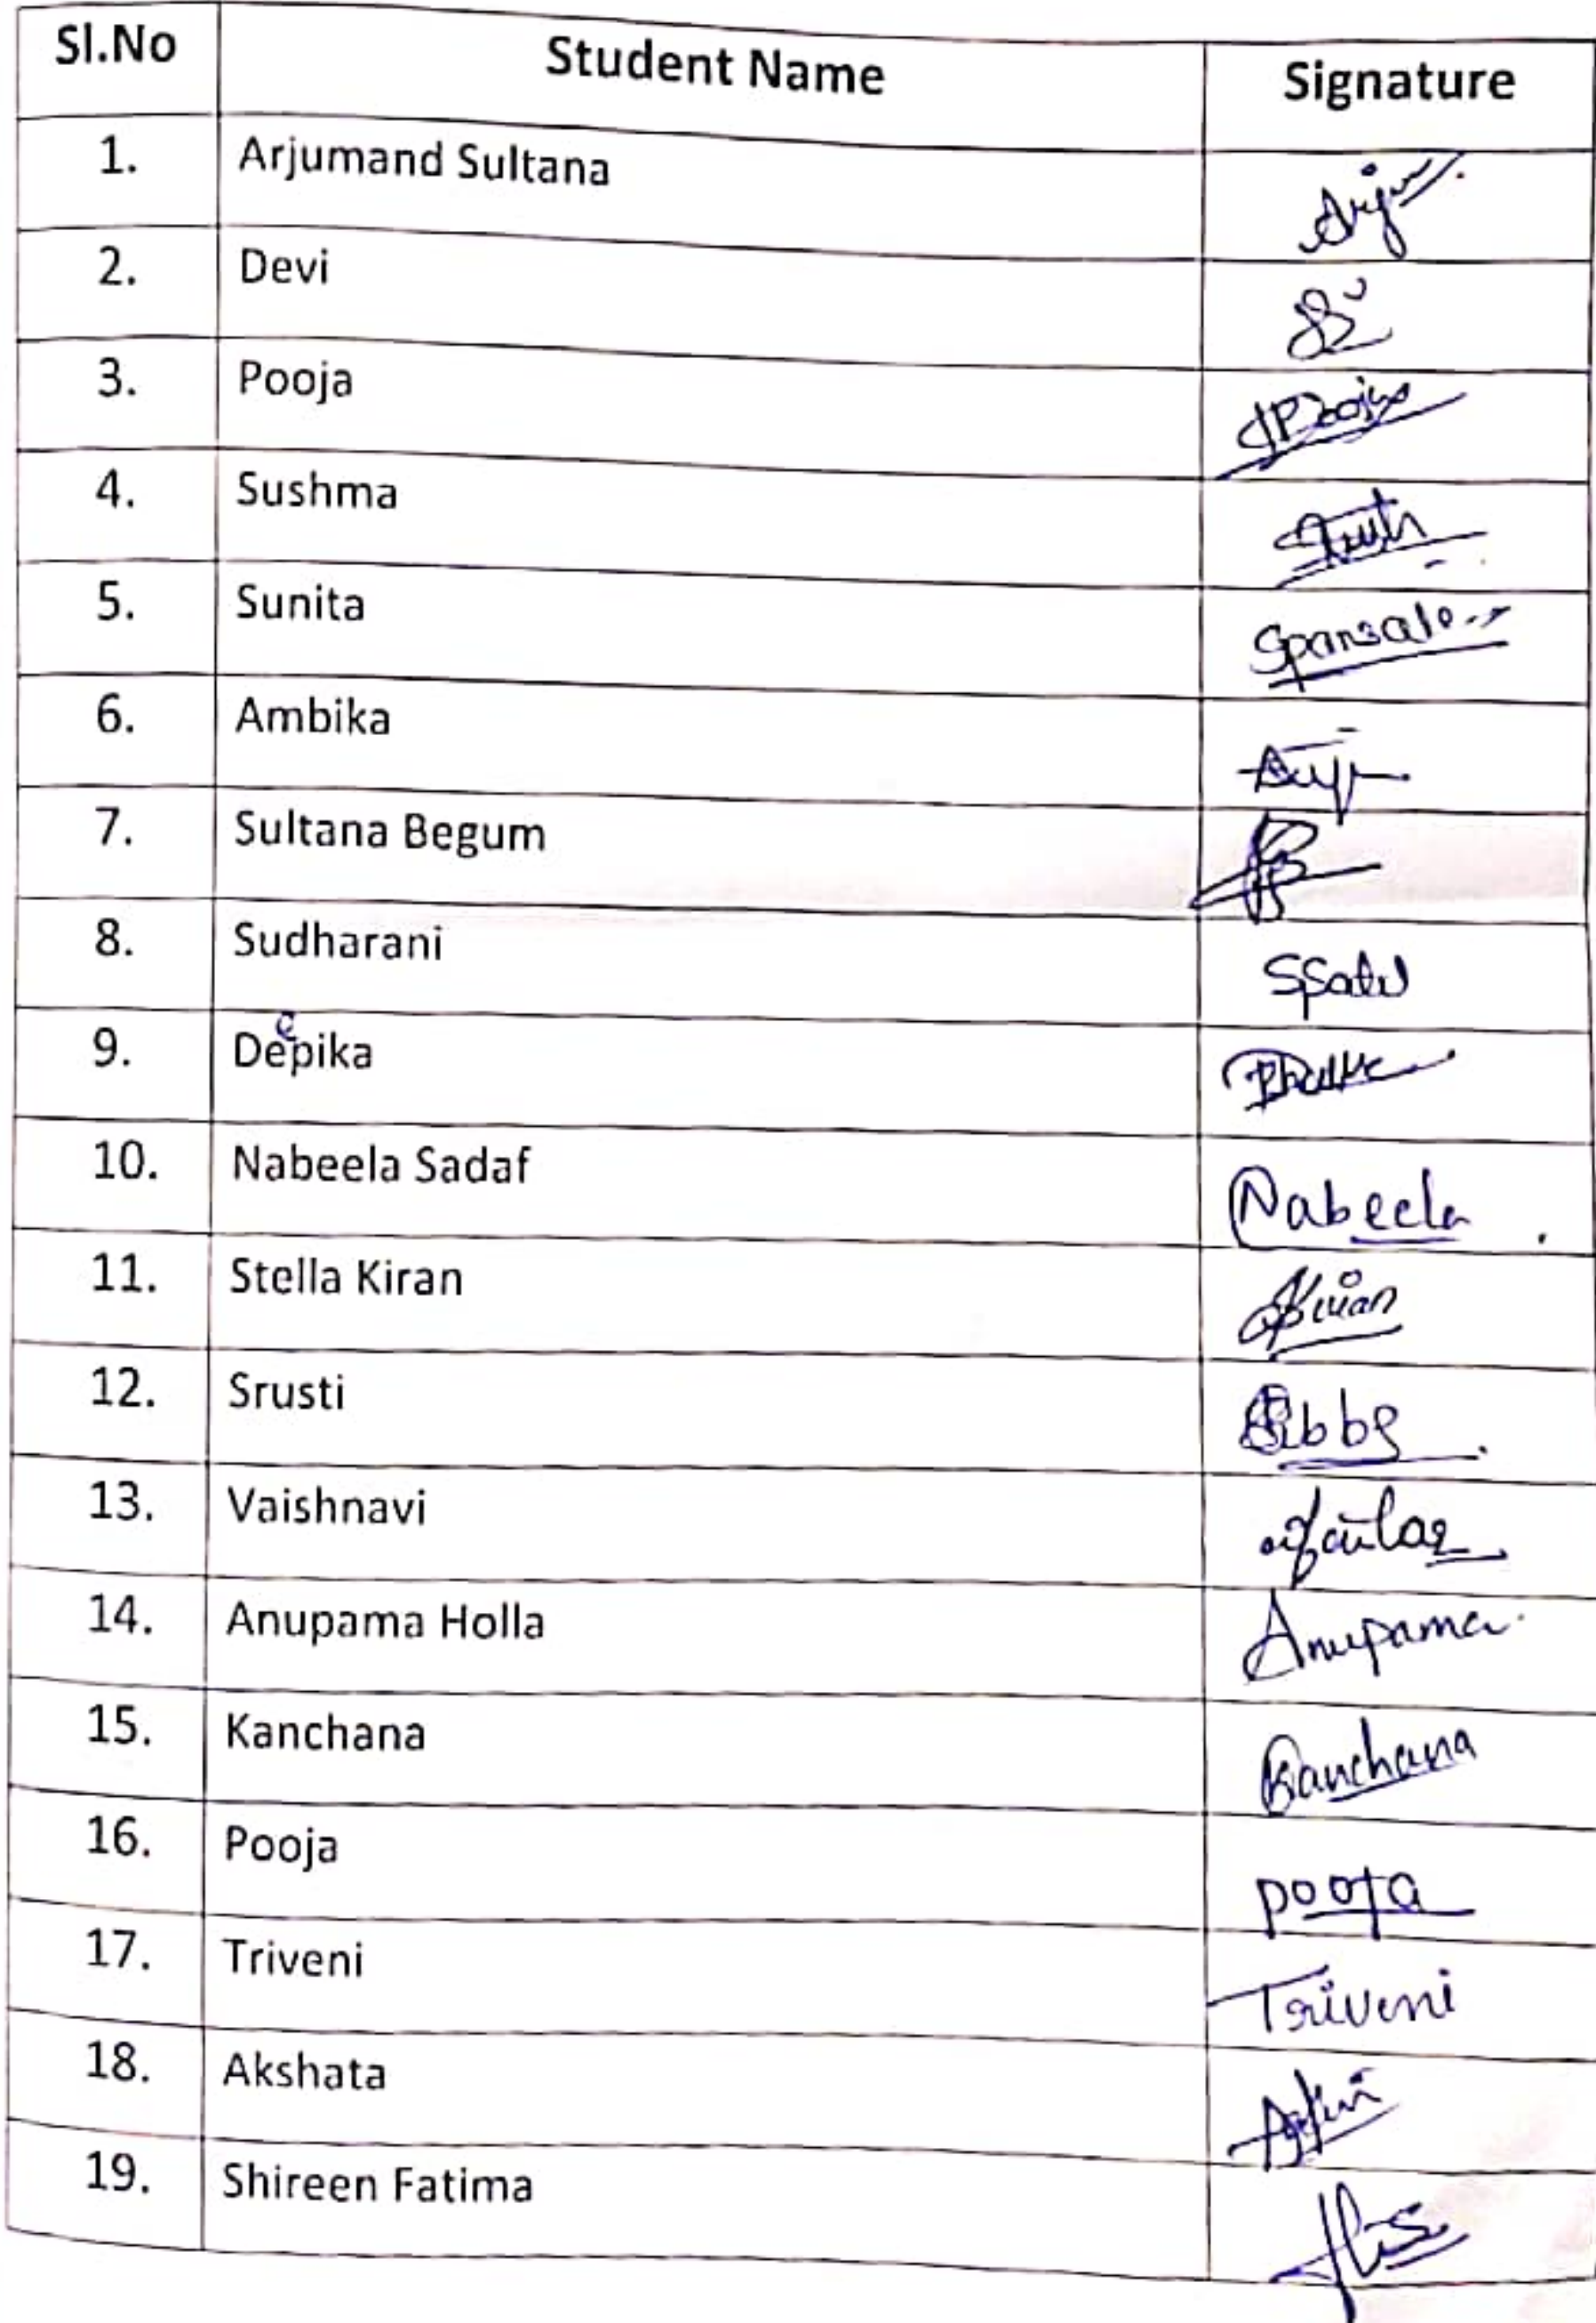 Sl.No Student Name Signature
1. Arjumand Sultana
2. Devi
3. Pooja Pooja
4. Sushma
5. Sunita
6. Ambika
7. Sultana Begum
8. Sudharani
9. Depika e
10. Nabeela Sadaf Nabeela
11. Stella Kiran Kiran
12. Srusti
13. Vaishnavi
14. Anupama Holla Anupama
15. Kanchana Kanchana
16. Pooja pooja
17. Triveni Triveni
18. Akshata
19. Shireen Fatima